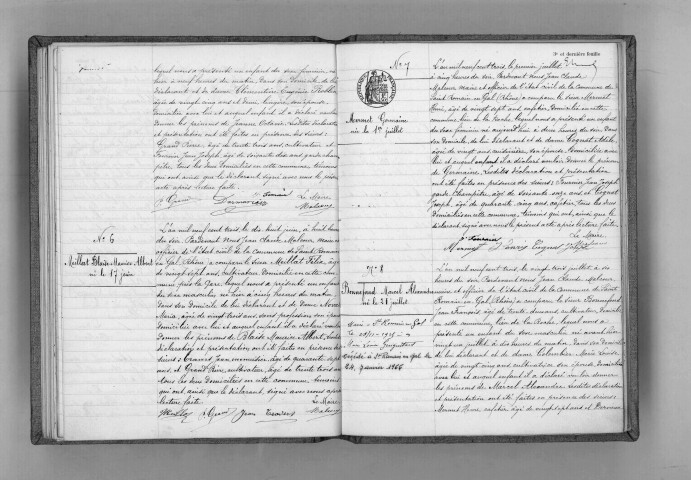 lequel nous a présenté un enfant du sexe féminin, né
hier à neuf heures du matin, dans son domicile, de lui
déclarant et de dame Clémentine Eugénie
âgée de vingt cinq ans et demi, lingère, son épouse
domiciliée avec lui et auquel enfant il a déclaré vouloir
donner les prénoms de Jeanne Octavie. Lesdites déclaration
et présentation ont été faites en présence des sieurs:
Grand Pierre, âgé de trente trois ans, cultivateur et
Fournier Jean Joseph, âgé de soixante dix ans, garde cham-
pêtre, tous les deux domiciliés en cette commune, témoins
qui ont, ainsi que le déclarant, signé avec nous le présent
acte après lecture faite.
Le Maire
N° 6
Meillat Blaise Maurice Albert
né le 17 juin
L'an mil neuf cent trois, le dix huit juin, à huit heures
du soir. Pardevant Nous Jean Claude Maleure, maire et
officier de l'état civil de la commune de Saint Romain
en Gal (Rhône) a comparu le sieur Meillat Félix, âgé
de vingt sept ans, cultivateur, domicilié en cette com-
mune, près la Gare, lequel nous a présenté un enfant
du sexe masculin né hier à cinq heures du matin,
dans son domicile, de lui déclarant et de dame
Maria, âgée de vingt trois ans, sans profession, son épouse
domiciliée avec lui et auquel enfant il a déclaré vouloir
donner les prénoms de Blaise Maurice Albert. Lesdites
déclaration et présentation ont été faites en présence des
sieurs: Jean, menuisier, âgé de quarante sept
ans et Grand Pierre, cultivateur, âgé de trente trois ans
tous les deux domiciliés en cette commune, témoins
qui ont, ainsi que le déclarant, signé avec nous après
lecture faite.
Le Maire
et dernière feuille
N° 7
Mermet Germaine
née le 1er juillet
L'an mil neuf cent trois, le premier juillet
à cinq heures du soir. Pardevant Nous Jean Claude
Maleure, maire et officier de l'état civil de la commune de
Saint Romain en Gal (Rhône) a comparu le sieur Mermet
Henri, âgé de vingt sept ans, cafetier, domicilié en cette
commune, lieu de la Roche, lequel nous a présenté un enfant
du sexe féminin né aujourd'hui à deux heures du soir dans
son domicile, de lui déclarant et de dame Coquet
âgée de vingt ans, son épouse, domiciliée avec
lui et auquel enfant il a déclaré vouloir donner le prénom
de Germaine. Lesdites déclaration et présentation
ont été faites en présence des sieurs: Fournier Jean Joseph,
garde champêtre, âgé de soixante onze ans et Coquet
Joseph, âgé de quarante cinq ans, cafetier, tous les deux
domiciliés en cette commune, témoins qui ont, ainsi que le
déclarant, signé avec nous le présent acte après lecture faite.
Le Maire
N° 8
Bonnefond Marcel Alexandre
né le 21 juillet
Marié à St Romain en Gal
Décédé à St Romain en Gal le
24 janvier 1966
L'an mil neuf cent trois, le vingt trois juillet à
heures du soir. Pardevant Nous Jean Claude Maleure,
maire et officier de l'état civil de la commune de Saint
Romain en Gal (Rhône) a comparu le sieur Bonnefond
Jean François, âgé de trente deux ans, cultivateur, domicilié
en cette commune, lieu de la Roche, lequel nous a
présenté un enfant du sexe masculin né avant hier
vingt un juillet à dix heures du matin, dans son domicile
de lui déclarant et de dame Colombier Marie Louise,
âgée de vingt cinq ans, cultivatrice, son épouse, domiciliée
avec lui et auquel enfant il a déclaré vouloir donner
les prénoms de Marcel Alexandre. Lesdites déclaration
et présentation ont été faites en présence des sieurs:
Mermet Henri, cafetier, âgé de vingt sept ans et